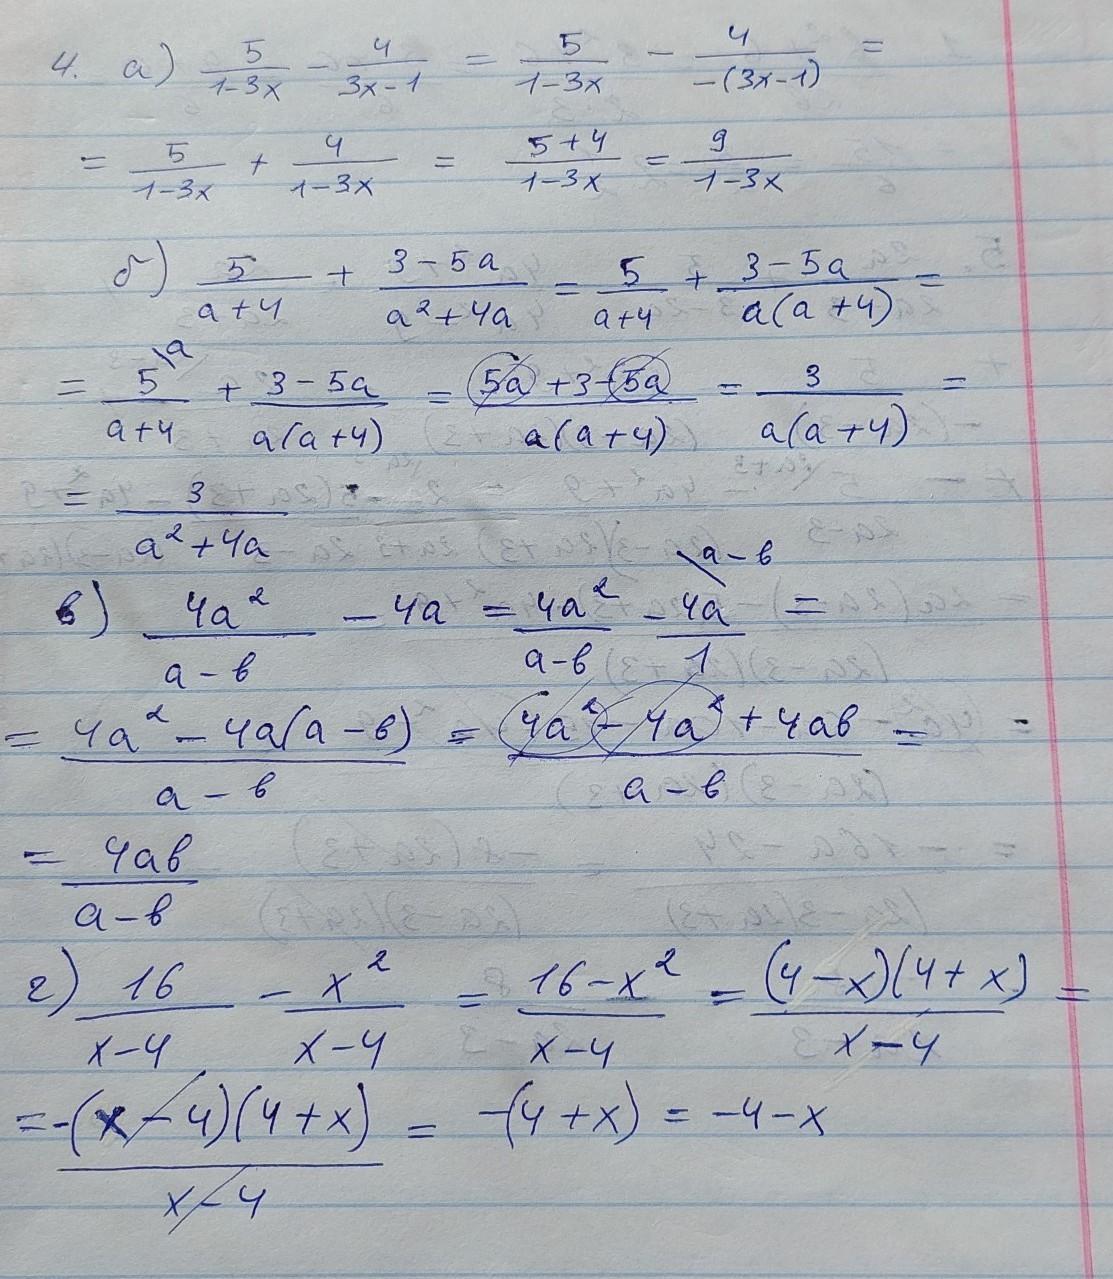 4. а) 5/(1-3x) - 4/(3x-1) = 5/(1-3x) - 4/(-(3x-1)) =
= 5/(1-3x) + 4/(1-3x) = (5+4)/(1-3x) = 9/(1-3x)
б) 5/(a+4) + (3-5a)/(a²+4a) = 5/(a+4) + (3-5a)/(a(a+4)) =
= 5\a/(a+4) + (3-5a)/(a(a+4)) = (5a+3-5a)/(a(a+4)) = 3/(a(a+4)) =
= 3/(a²+4a)
в) 4a²/(a-в) - 4a = 4a²/(a-в) - 4a\a-в/1 =
= (4a²-4a(a-в))/(a-в) = (4a²-4a²+4aв)/(a-в) =
= 4aв/(a-в)
г) 16/(x-4) - x²/(x-4) = (16-x²)/(x-4) = (4-x)(4+x)/(x-4) =
= -(x-4)(4+x)/(x-4) = -(4+x) = -4-x